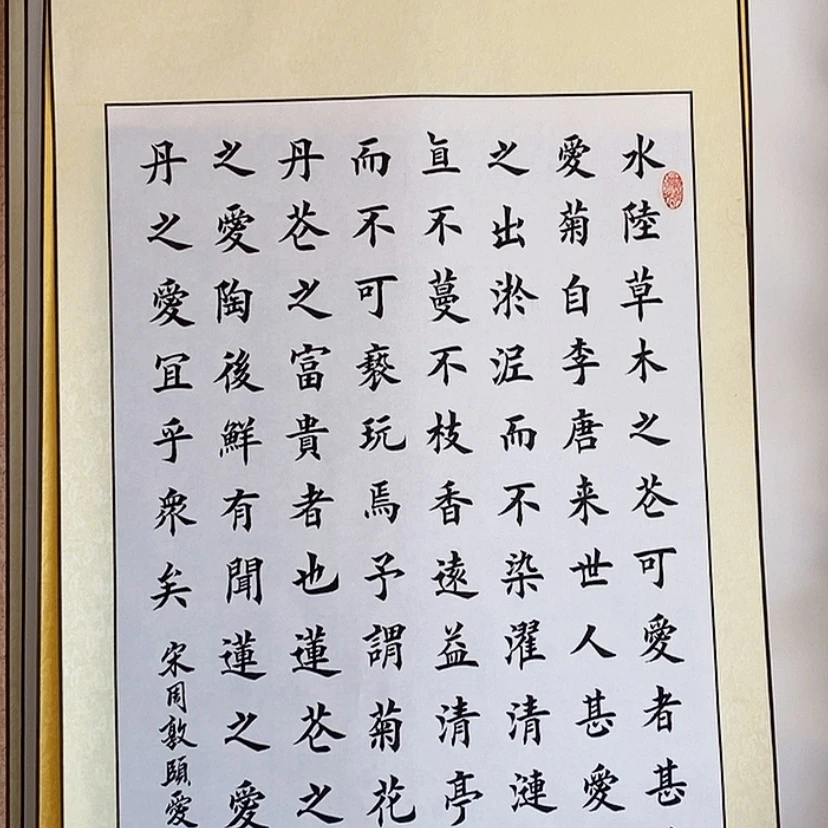 水陸草木之花可愛者甚
愛菊自李唐来世人甚愛
之出淤泥而不染濯清漣
直不蔓不枝香遠益清亭
而不可褻玩焉予謂菊花
丹花之富貴者也蓮花之
之愛陶後鮮有聞蓮之愛
丹之愛宜乎衆矣
宋周敦頤愛